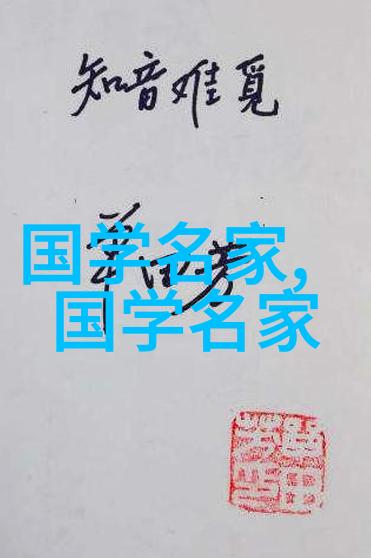 知音难觅
单田芳
国学名家,
国学名家